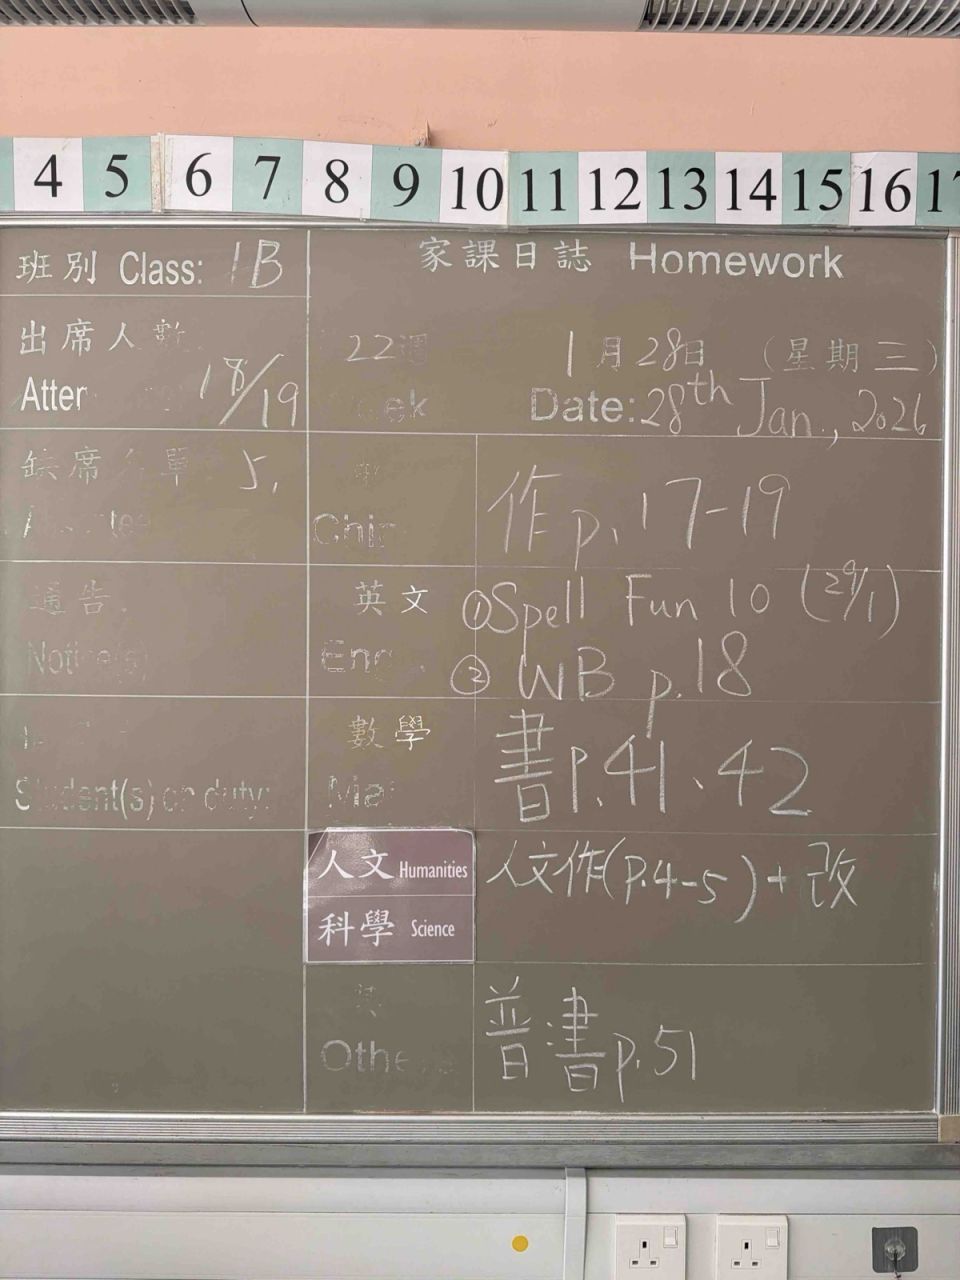 4 5 6 7 8 9 10 11 12 13 14 15 16 17
班別 Class: 1B
家課日誌 Homework
出席人數
Atter 18/19
22週
1月28日 (星期三)
eek
Date: 28th Jan., 2026
缺席 單 5,
中
Chin
作 p. 17-19
通告
Notice(s)
英文
Eng
① Spell Fun 10 (29/1)
② WB p.18
Student(s) on duty:
數學
Mat
書 P.41、42
人文 Humanities
科學 Science
人文作(P.4-5)+改
其
Othe
普書 p.51